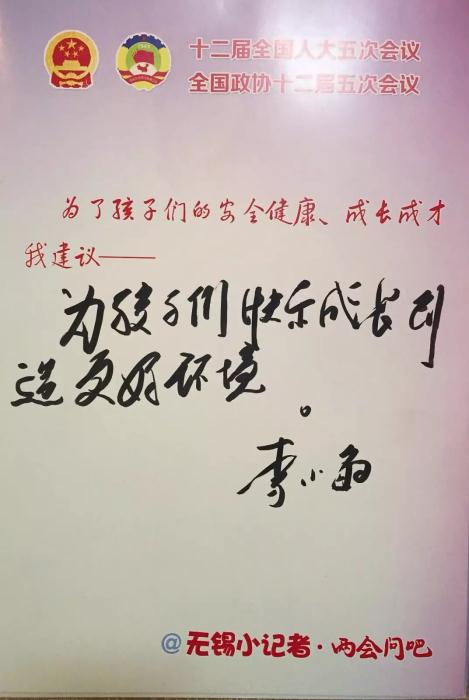 十二届全国人大五次会议
全国政协十二届五次会议
为了孩子们的安全健康、成长成才
我建议——
为孩子们快乐成长创
造更好环境。
李小敏
@无锡小记者·两会问吧